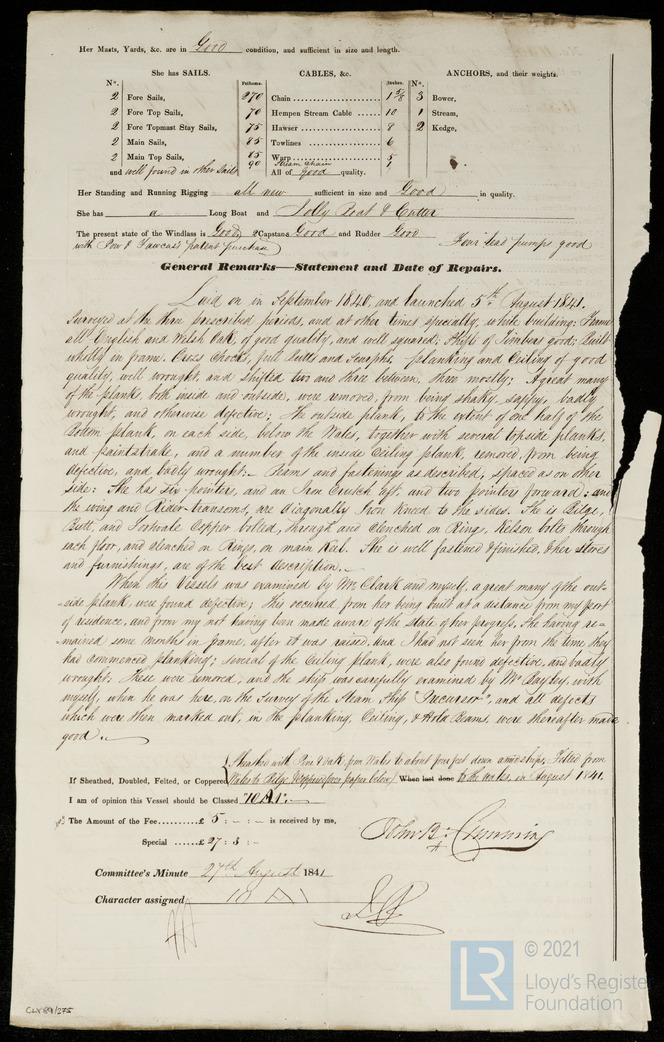 Her Masts, Yards, &c. are in Good condition, and sufficient in size and length.
She has SAILS. CABLES, &c. ANCHORS, and their weights.
N°. Fathoms. Inches. N°.
2 Fore Sails, 270 Chain 1 5/8 3 Bower,
2 Fore Top Sails, 70 Hempen Stream Cable 10 1 Stream,
2 Fore Topmast Stay Sails, 75 Hawser 8 2 Kedge,
2 Main Sails, 85 Towlines 6
2 Main Top Sails, 85 Warp 5
90 Stream Chain 1
and well found in other Sails All of good quality.
Her Standing and Running Rigging all new sufficient in size and Good in quality.
She has a Long Boat and Jolly Boat & Cutter
The present state of the Windlass is Good, 2 Capstans Good and Rudder Good Four lead pumps good
with Pow & Fawcus's patent purchase
General Remarks—Statement and Date of Repairs.
Laid on in September 1840, and launched 5th August 1841.
Surveyed at the three prescribed periods, and at other times specially, while building: Frame
all English and Welsh Oak, of good quality, and well squared; Shifts of Timbers good; Built
wholly in frame. Cross Chocks, full Butts and Scarphs, planking and Ceiling of good
quality, well wrought, and shifted two and three between, three mostly: A great many
of the plank both inside and outside, were removed, from being shaky, sappy, badly
wrought, and otherwise defective; the outside plank, to the extent of one half of the
Bottom plank, on each side, below the Wales, together with several topside planks,
and paintstrake, and a number of the inside Ceiling plank, removed, from being
defective, and badly wrought:— Beams and fastenings as described, spaced as on other
side: She has six pointers, and an Iron Crutch aft, and two pointers forward: and
the wing and Rider transoms, are diagonally Iron Kneed to the sides. She is Bilge,
Butt, and Copper bolted, through and clenched on Rings, Kelson bolts through
each floor, and clenched on Rings, on main Keel. She is well fastened & finished, & her stores
and furnishings, are of the best description.
When this Vessels was examined by Mr Clark and myself, a great many of the out-
-side plank, were found defective; this occured from her being built at a distance from my port
of residence, and from my not having been made aware of the state of her progress. She having re-
mained some months in frame, after it was raised, and I had not seen her from the time, they
had commenced planking; several of the Ceiling plank, were also found defective, and badly
wrought: these were removed, and the ship was carefully examined by Mr Bayley, with
myself, when he was here, on the Survey of the Steam Ship "Precursor", and all defects
which were then marked out, in the planking, Ceiling, & Hold Beams, were thereafter made
good.
Sheathed with Pine & Oak, from Wales to about four feet down amidships, Felted from
If Sheathed, Doubled, Felted, or Coppered Wales to Bilge, & paper below) When last done to the Wales, in August 1841.
I am of opinion this Vessel should be Classed "10 A1".
The Amount of the Fee £ 5 : - : - is received by me,
Special £ 27 : 3 : - John B. Cumming
Committee's Minute 27th August 1841
Character assigned 10 A1
CLX 89/275
LR © 2021
Lloyd's Register
Foundation